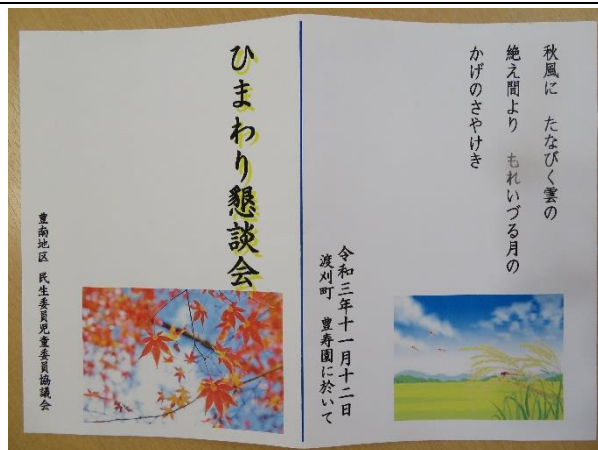 秋風に　たなびく雲の
絶え間より　もれいづる月の
かげのさやけき
令和三年十一月十二日
渡刈町　豊寿園に於いて
ひまわり懇談会
豊南地区　民生委員児童委員協議会